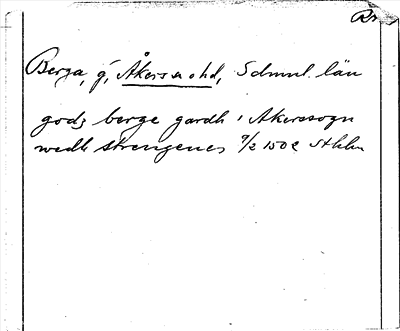 Berga, g, Åkers sn o hd, Sdmnl. län
godz berge gardh i Akerssogn
wedh strengenes 9/2 1502 Sthlm